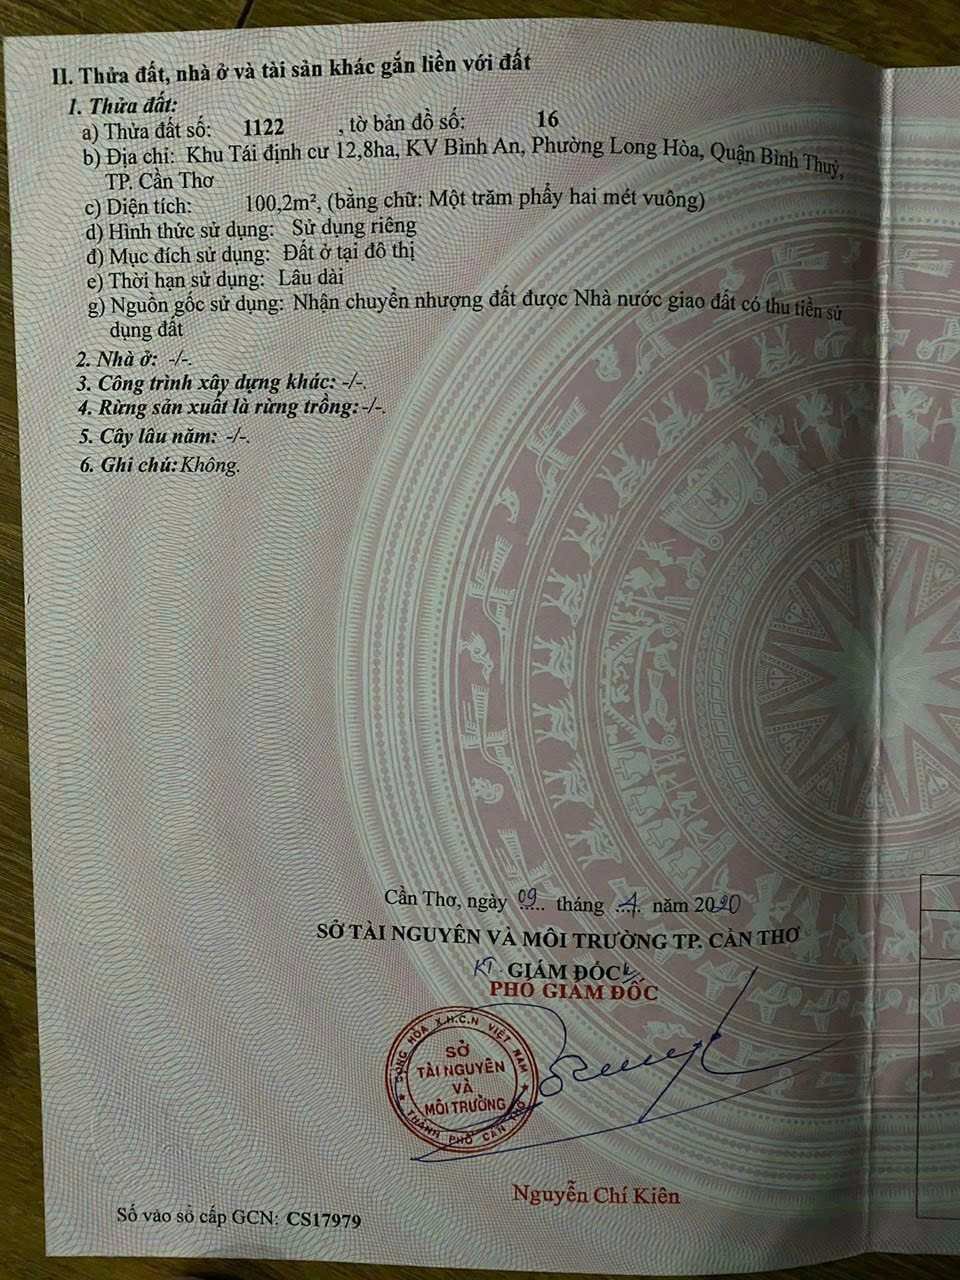 II. Thửa đất, nhà ở và tài sản khác gắn liền với đất
1. Thửa đất:
a) Thửa đất số: 1122 , tờ bản đồ số: 16
b) Địa chỉ: Khu Tái định cư 12,8ha, KV Bình An, Phường Long Hòa, Quận Bình Thuỷ,
TP. Cần Thơ
c) Diện tích: 100,2m², (bằng chữ: Một trăm phẩy hai mét vuông)
d) Hình thức sử dụng: Sử dụng riêng
đ) Mục đích sử dụng: Đất ở tại đô thị
e) Thời hạn sử dụng: Lâu dài
g) Nguồn gốc sử dụng: Nhận chuyển nhượng đất được Nhà nước giao đất có thu tiền sử
dụng đất
2. Nhà ở: -/-.
3. Công trình xây dựng khác: -/-.
4. Rừng sản xuất là rừng trồng: -/-.
5. Cây lâu năm: -/-.
6. Ghi chú: Không.
Cần Thơ, ngày 09 tháng 4 năm 2020
SỞ TÀI NGUYÊN VÀ MÔI TRƯỜNG TP. CẦN THƠ
KT. GIÁM ĐỐC
PHÓ GIÁM ĐỐC
CỘNG HÒA X.H.C.N VIỆT NAM
SỞ
TÀI NGUYÊN
VÀ
MÔI TRƯỜNG
THÀNH PHỐ CẦN THƠ
Nguyễn Chí Kiên
Số vào sổ cấp GCN: CS17979